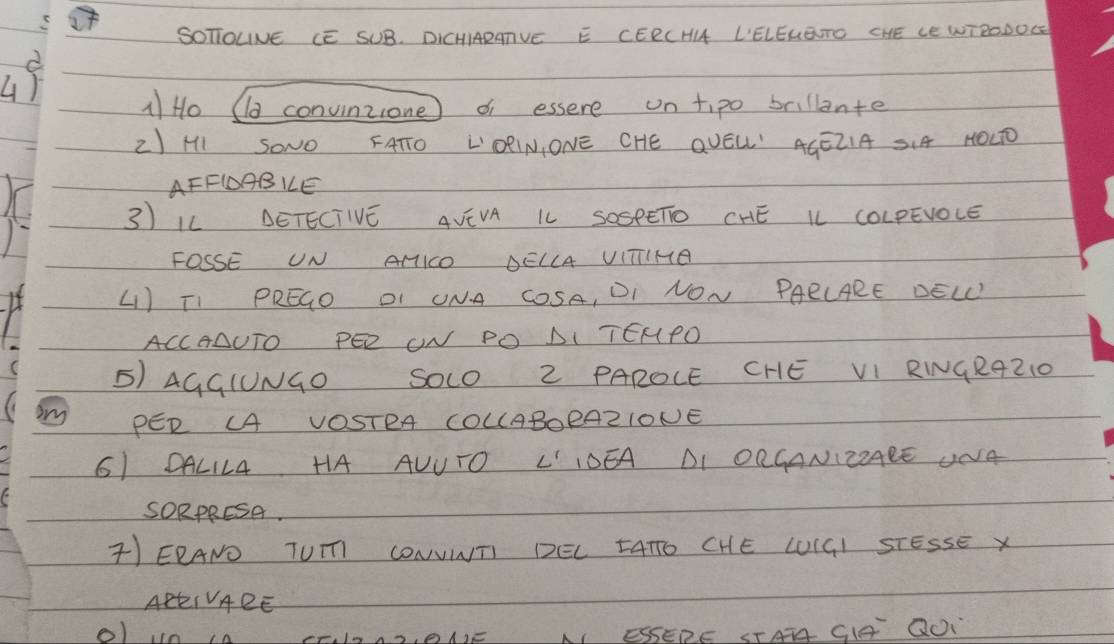 27
SOTTOLINE LE SUB. DICHIARATIVE E CERCHIA L'ELEMENTO CHE LE INTRODUCE
4)
1) HO la convinzione di essere un tipo brillante
2) MI SONO FATTO L'OPINIONE CHE QUELL' AGEZIA SIA MOLTO
AFFIDABILE
3) IL DETECTIVE AVEVA IL SOSPETTO CHE IL COLPEVOLE
FOSSE UN AMICO DELLA VITTIMA
4) TI PREGO DI UNA COSA, DI NON PARLARE DELL'
ACCADUTO PER UN PO DI TEMPO
5) AGGIUNGO SOLO 2 PAROLE CHE VI RINGRAZIO
PER LA VOSTRA COLLABORAZIONE
6) DALILA HA AVUTO L'IDEA DI ORGANIZZARE UNA
SORPRESA.
7) ERANO TUTTI CONVINTI DEL FATTO CHE LUIGI STESSE X
ARRIVARE
ESSERE STATA GIÀ QUI